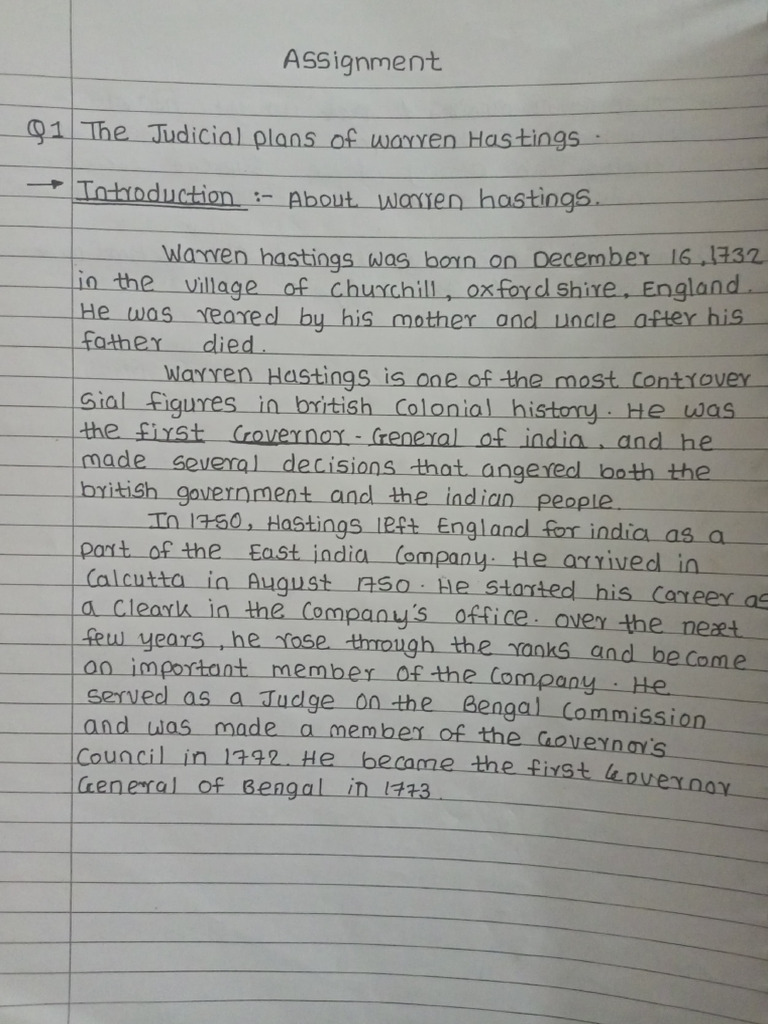 Assignment
Q1 The Judicial plans of warren Hastings.
→ Introduction :- About warren hastings.
Warren hastings was born on December 16, 1732
in the village of churchill, oxfordshire, England.
He was reared by his mother and uncle after his
father died.
Warren Hastings is one of the most controver
sial figures in british colonial history. He was
the first Governor-General of india, and he
made several decisions that angered both the
british government and the indian people.
In 1750, Hastings left England for india as a
part of the East india Company. He arrived in
Calcutta in August 1750. He started his career as
a Cleark in the Company's office. over the next
few years, he rose through the ranks and become
an important member of the Company. He
served as a Judge on the Bengal Commission
and was made a member of the Governor's
Council in 1772. He became the first Governor
General of Bengal in 1773.